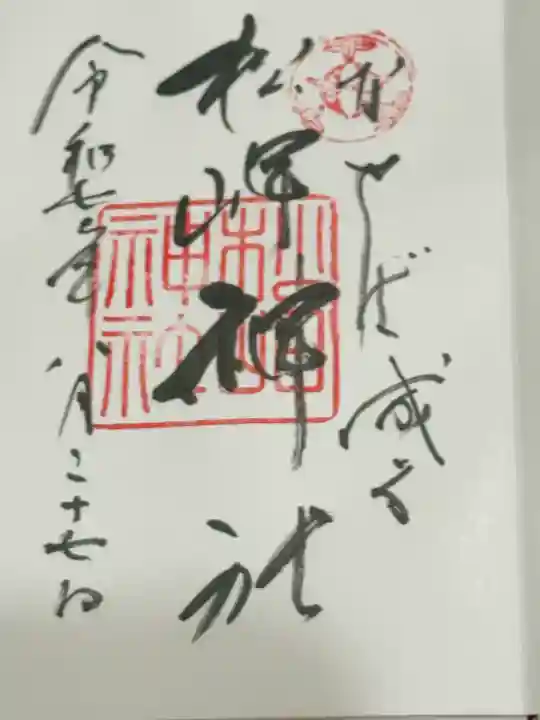 なせば成る
松岬神社
松岬
神社
令和七年八月二十七日